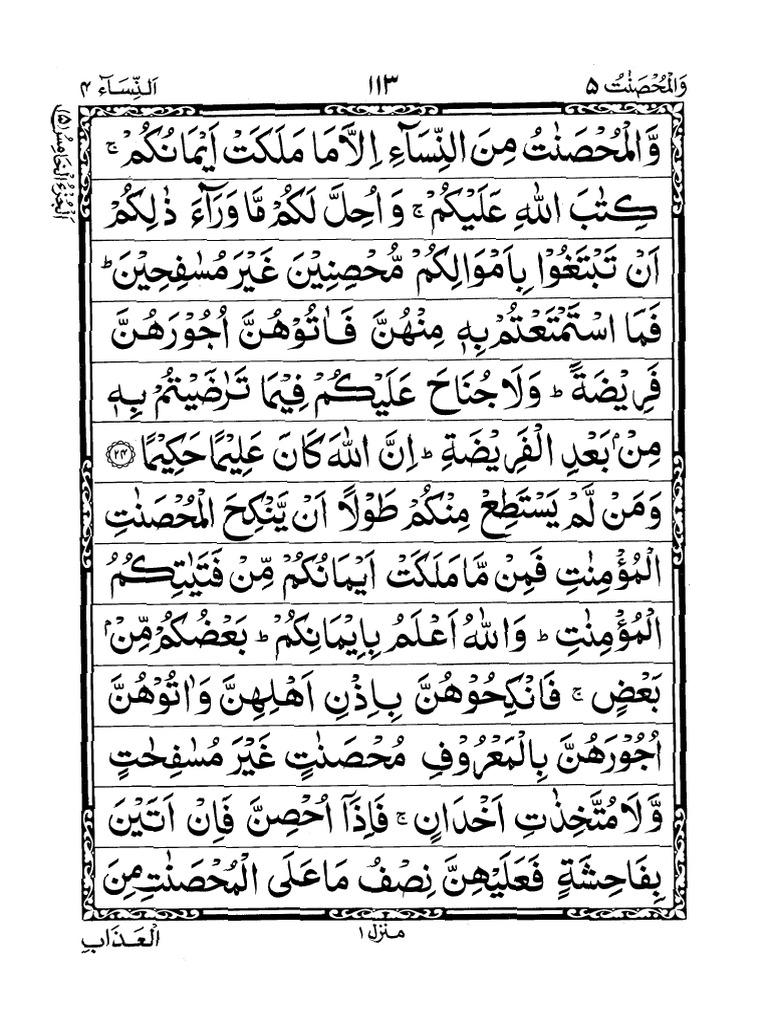 وَالْمُحْصَنٰتُ ۵ ۱۱۳ اَلنِّسَآء ۴
اَلْجُزْءُ الْخَامِسُ (۵)
وَّالْمُحْصَنٰتُ مِنَ النِّسَآءِ اِلَّا مَا مَلَكَتْ اَيْمَانُكُمْ ۚ
كِتٰبَ اللّٰهِ عَلَيْكُمْ ۚ وَ اُحِلَّ لَكُمْ مَّا وَرَآءَ ذٰلِكُمْ
اَنْ تَبْتَغُوْا بِاَمْوَالِكُمْ مُّحْصِنِيْنَ غَيْرَ مُسٰفِحِيْنَ ؕ
فَمَا اسْتَمْتَعْتُمْ بِهٖ مِنْهُنَّ فَاٰتُوْهُنَّ اُجُوْرَهُنَّ
فَرِيْضَةً ؕ وَلَا جُنَاحَ عَلَيْكُمْ فِيْمَا تَرٰضَيْتُمْ بِهٖ
مِنْۢ بَعْدِ الْفَرِيْضَةِ ؕ اِنَّ اللّٰهَ كَانَ عَلِيْمًا حَكِيْمًا ﴿۲۴﴾
وَمَنْ لَّمْ يَسْتَطِعْ مِنْكُمْ طَوْلًا اَنْ يَّنْكِحَ الْمُحْصَنٰتِ
الْمُؤْمِنٰتِ فَمِنْ مَّا مَلَكَتْ اَيْمَانُكُمْ مِّنْ فَتَيٰتِكُمُ
الْمُؤْمِنٰتِ ؕ وَاللّٰهُ اَعْلَمُ بِاِيْمَانِكُمْ ؕ بَعْضُكُمْ مِّنْۢ
بَعْضٍ ۚ فَانْكِحُوْهُنَّ بِاِذْنِ اَهْلِهِنَّ وَاٰتُوْهُنَّ
اُجُوْرَهُنَّ بِالْمَعْرُوْفِ مُحْصَنٰتٍ غَيْرَ مُسٰفِحٰتٍ
وَّلَا مُتَّخِذٰتِ اَخْدَانٍ ۚ فَاِذَآ اُحْصِنَّ فَاِنْ اَتَيْنَ
بِفَاحِشَةٍ فَعَلَيْهِنَّ نِصْفُ مَا عَلَى الْمُحْصَنٰتِ مِنَ
منزل ۱ الْعَذَابِ